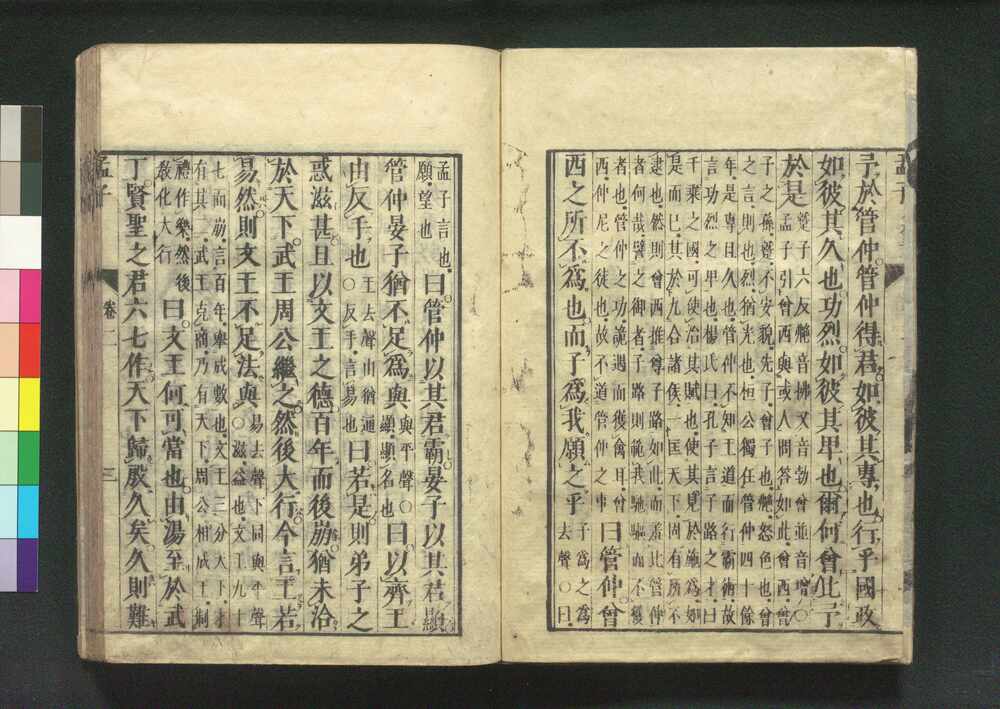 孟子
子於管仲管仲得君如彼其專也行乎國政
如彼其久也功烈如彼其卑也爾何曾比予
於是
蹵子六反艴音拂又音勃曾並音增〇
孟子引曾西與或人問答如此曾西曾
子之孫蹵不安貌先子曾子也艴怒色也曾
之言則也烈猶光也桓公獨任管仲四十餘
年是專且久也管仲不知王道而行霸術故
言功烈之卑也楊氏曰孔子言子路之才曰
千乘之國可使治其賦也使其見於施爲如
是而已其於九合諸侯一匡天下固有所不
逮也然則曾西推尊子路如此而羞比管仲
者何哉譬之御者子路則範我馳驅而不獲
者也管仲之功詭遇而獲禽耳曾
西仲尼之徒也故不道管仲之事
曰管仲曾
西之所不爲也而子爲我願之乎
子爲之爲
去聲〇曰
孟子言也
願望也
曰管仲以其君霸晏子以其君顯
管仲晏子猶不足爲與
與平聲〇
顯顯名也
曰以齊王
由反手也
王去聲由猶通
〇反手言易也
曰若是則弟子之
惑滋甚且以文王之德百年而後崩猶未洽
於天下武王周公繼之然後大行今言王若
易然則文王不足法與
易去聲下同與平聲
〇滋益也文王九十
七而崩言百年舉成數也文王三分天下才
有其二武王克商乃有天下周公相成王制
禮作樂然後
敎化大行
曰文王何可當也由湯至於武
丁賢聖之君六七作天下歸殷久矣久則難
孟子
卷二
三